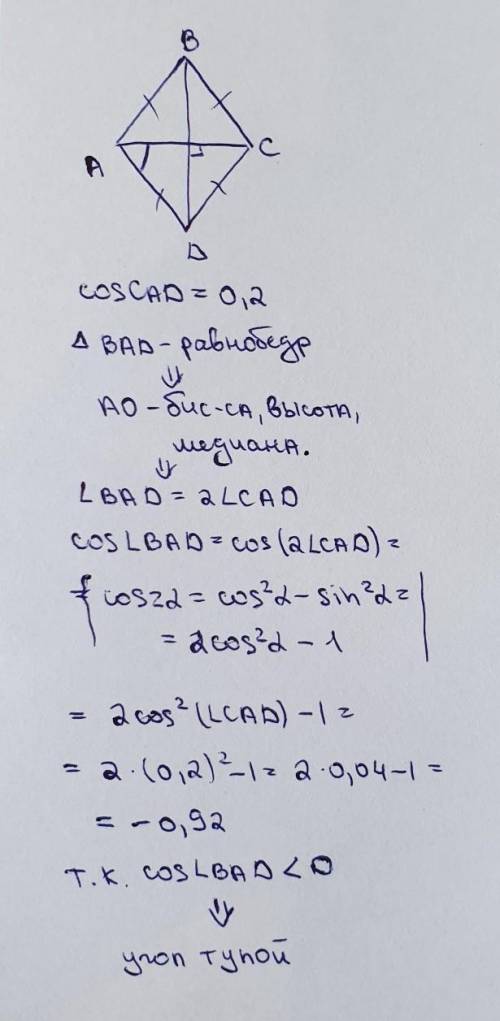 B
A
C
D
cosCAD = 0,2
Δ BAD - равнобедр
⇓
AO - бис-са, высота,
медиана.
⇓
∠BAD = 2∠CAD
cos∠BAD = cos(2∠CAD) =
= cos2α = cos²α - sin²α =
= 2cos²α - 1
= 2cos²(∠CAD) - 1 =
= 2·(0,2)² - 1 = 2·0,04 - 1 =
= - 0,92
Т.К. cos∠BAD < 0
⇓
угол тупой